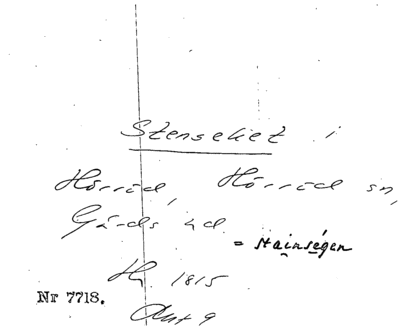 Stenseket i
Hörröd, Hörröd sn,
Gärds hd
= stainségen
Hj 1815
Nr 7718.
Ant 9